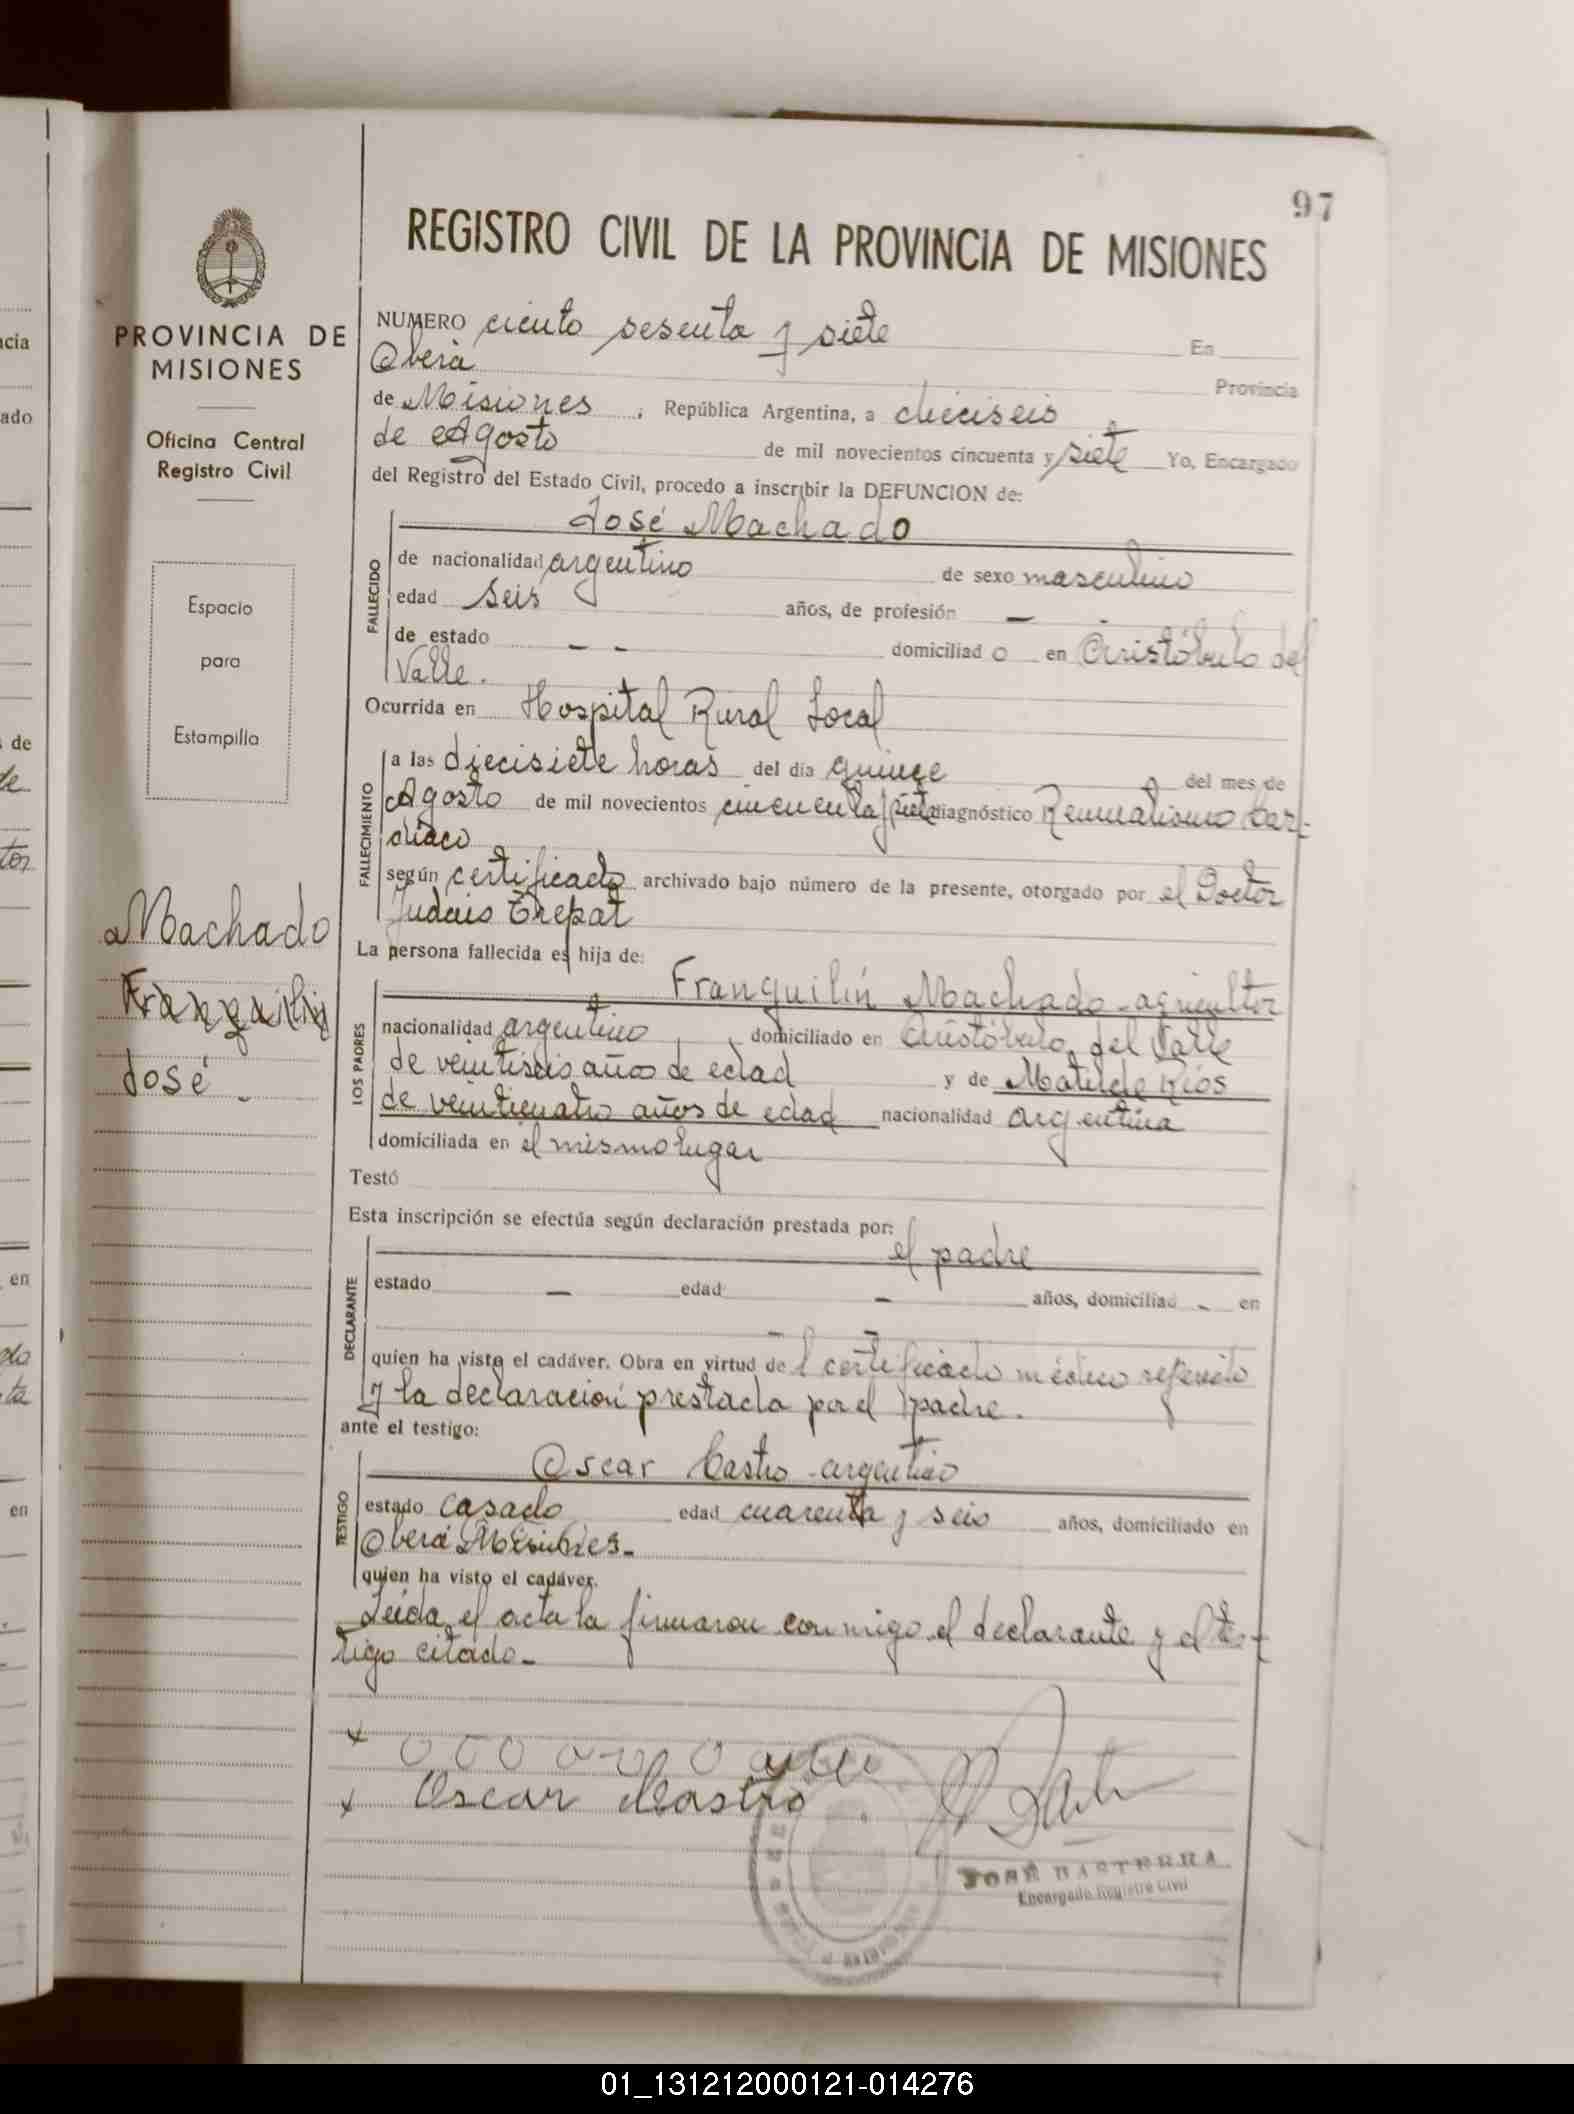 97
REGISTRO CIVIL DE LA PROVINCIA DE MISIONES
PROVINCIA DE
MISIONES
Oficina Central
Registro Civil
Espacio
para
Estampilla
Machado
Franquilin
José -
NUMERO ciento sesenta y siete En
Oberá Provincia
de Misiones, República Argentina, a dieciseis
de Agosto de mil novecientos cincuenta y siete Yo, Encargado
del Registro del Estado Civil, procedo a inscribir la DEFUNCION de:
José Machado
FALLECIDO
de nacionalidad argentino de sexo masculino
edad seis años, de profesión -
de estado - - domiciliado en Aristóbulo del
Valle.
Ocurrida en Hospital Rural Local
FALLECIMIENTO
a las diecisiete horas del día quince del mes de
Agosto de mil novecientos cincuenta y siete diagnóstico Reumatismo Car-
díaco
según certificado archivado bajo número de la presente, otorgado por el Doctor
Trepat
La persona fallecida es hija de:
Franquilín Machado - agricultor
LOS PADRES
nacionalidad argentino, domiciliado en Aristóbulo del Valle
de veintiseis años de edad y de Matilde Rios
de veinticuatro años de edad nacionalidad argentina
domiciliada en el mismo lugar
Testó
Esta inscripción se efectúa según declaración prestada por:
el padre
DECLARANTE
estado - edad - años, domiciliad - en
- -
quien ha visto el cadáver. Obra en virtud del certificado médico referido
y la declaración prestada por el padre.
ante el testigo:
Oscar Castro - argentino
TESTIGO
estado casado edad cuarenta y seis años, domiciliado en
Oberá Misiones.-
quien ha visto el cadáver.
Leída el acta la firmaron conmigo el declarante y el tes-
tigo citado.-
x
x Oscar Castro
JOSÉ BASTERRA
Encargado Registro Civil
01_131212000121-014276